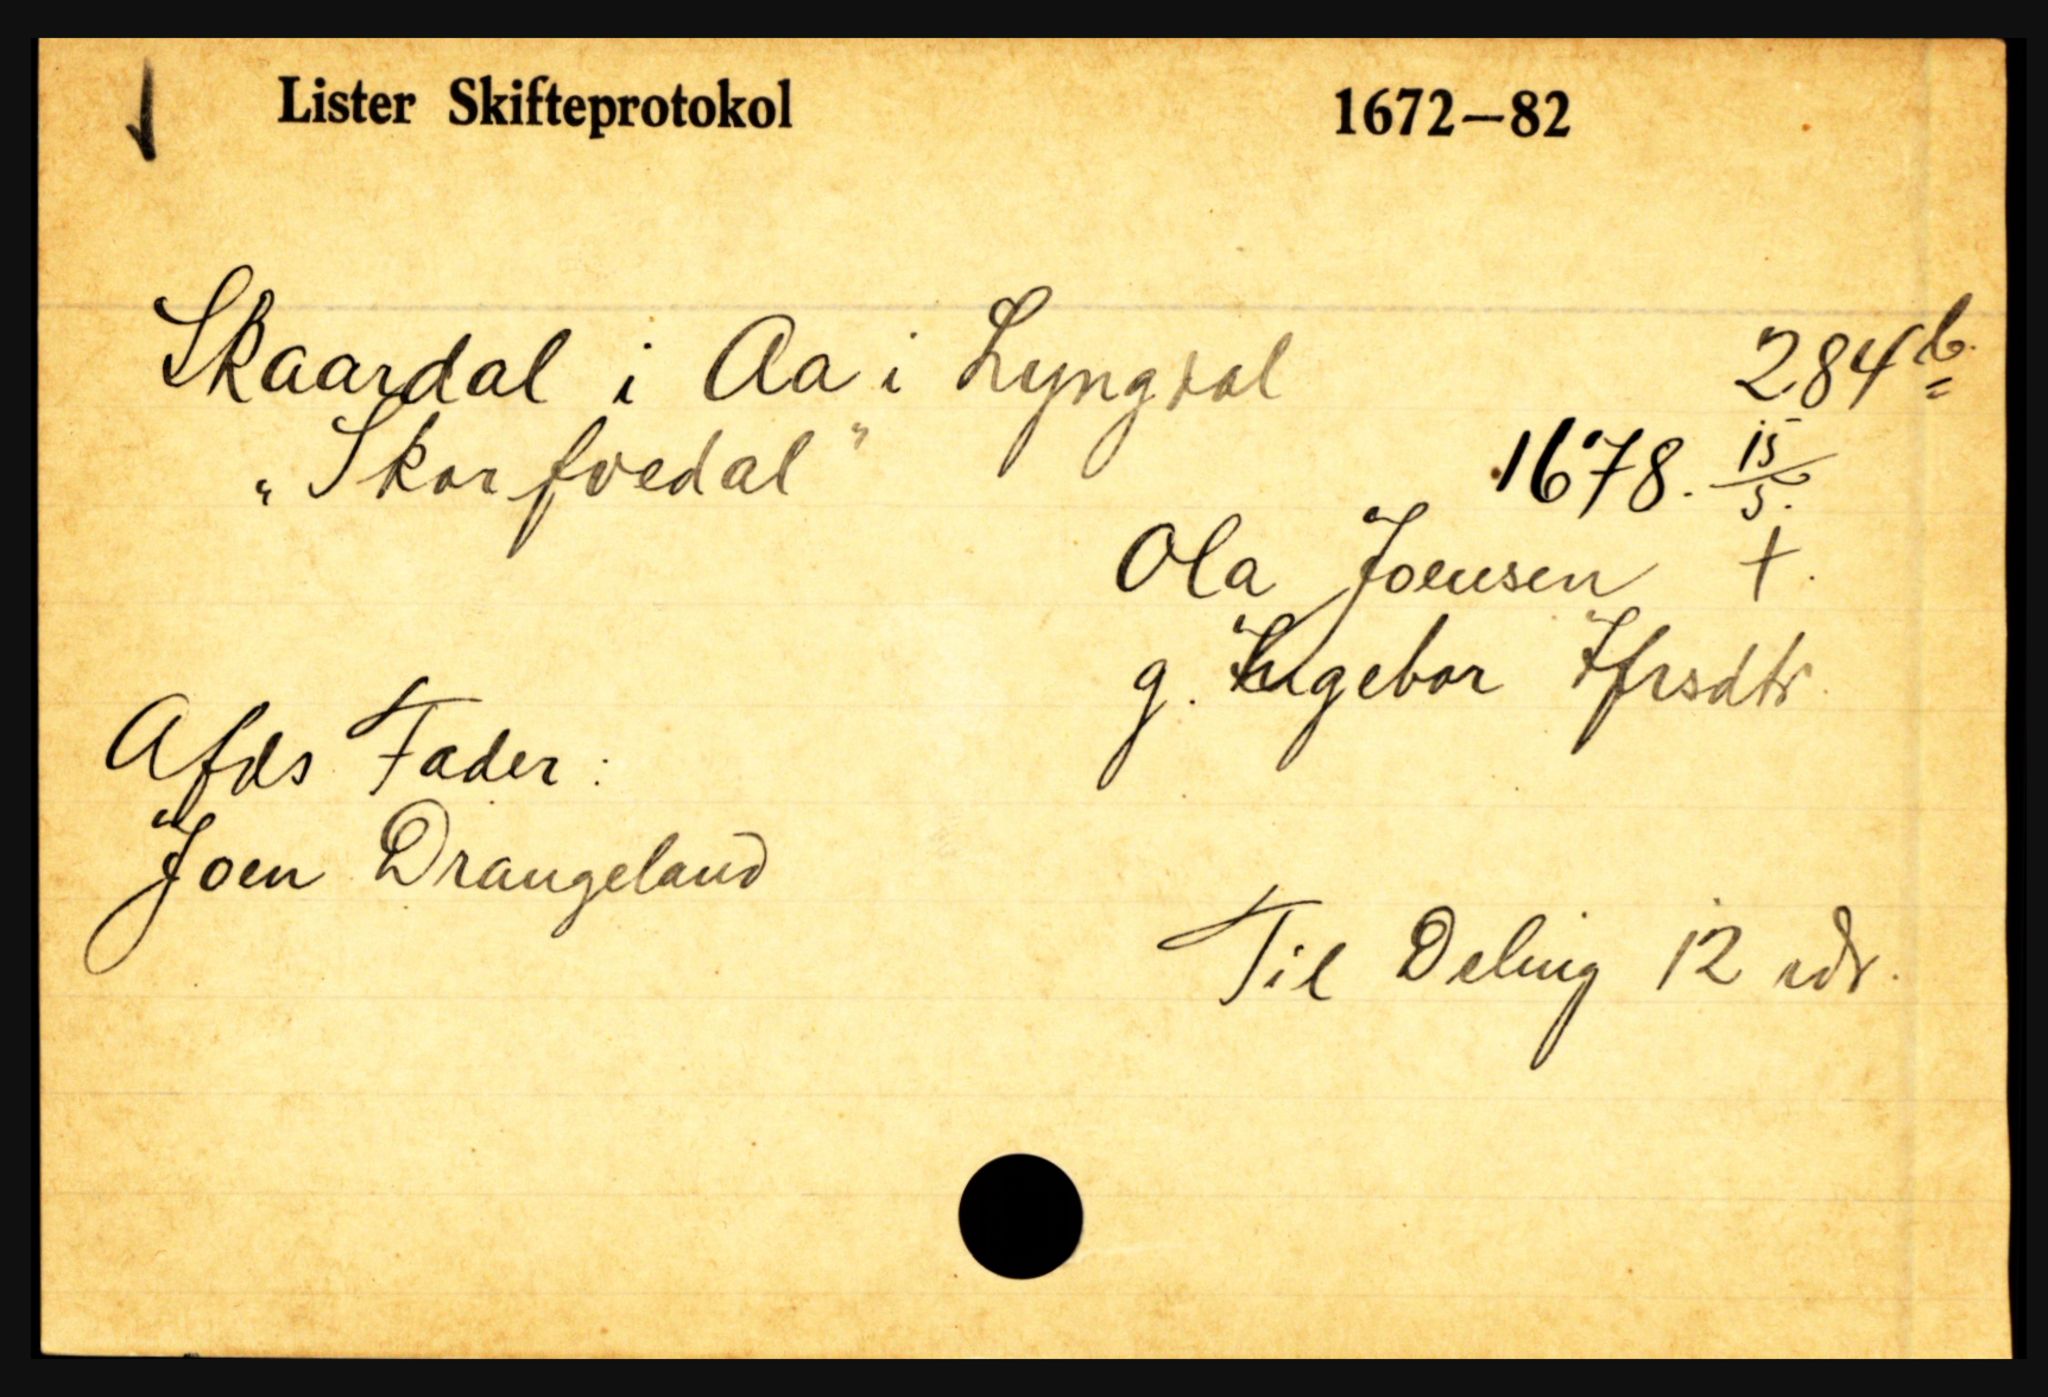 Lister Skifteprotokol 1672–82
Skaardal i Aa i Lyngdal 284b.
„Skorfvedal" 1678. 15/5.
Ola Joensen †.
g. Ingebor Ifrsdtr.
Afdes Fader:
Joen Drangeland
Til Deling 12 rdr.